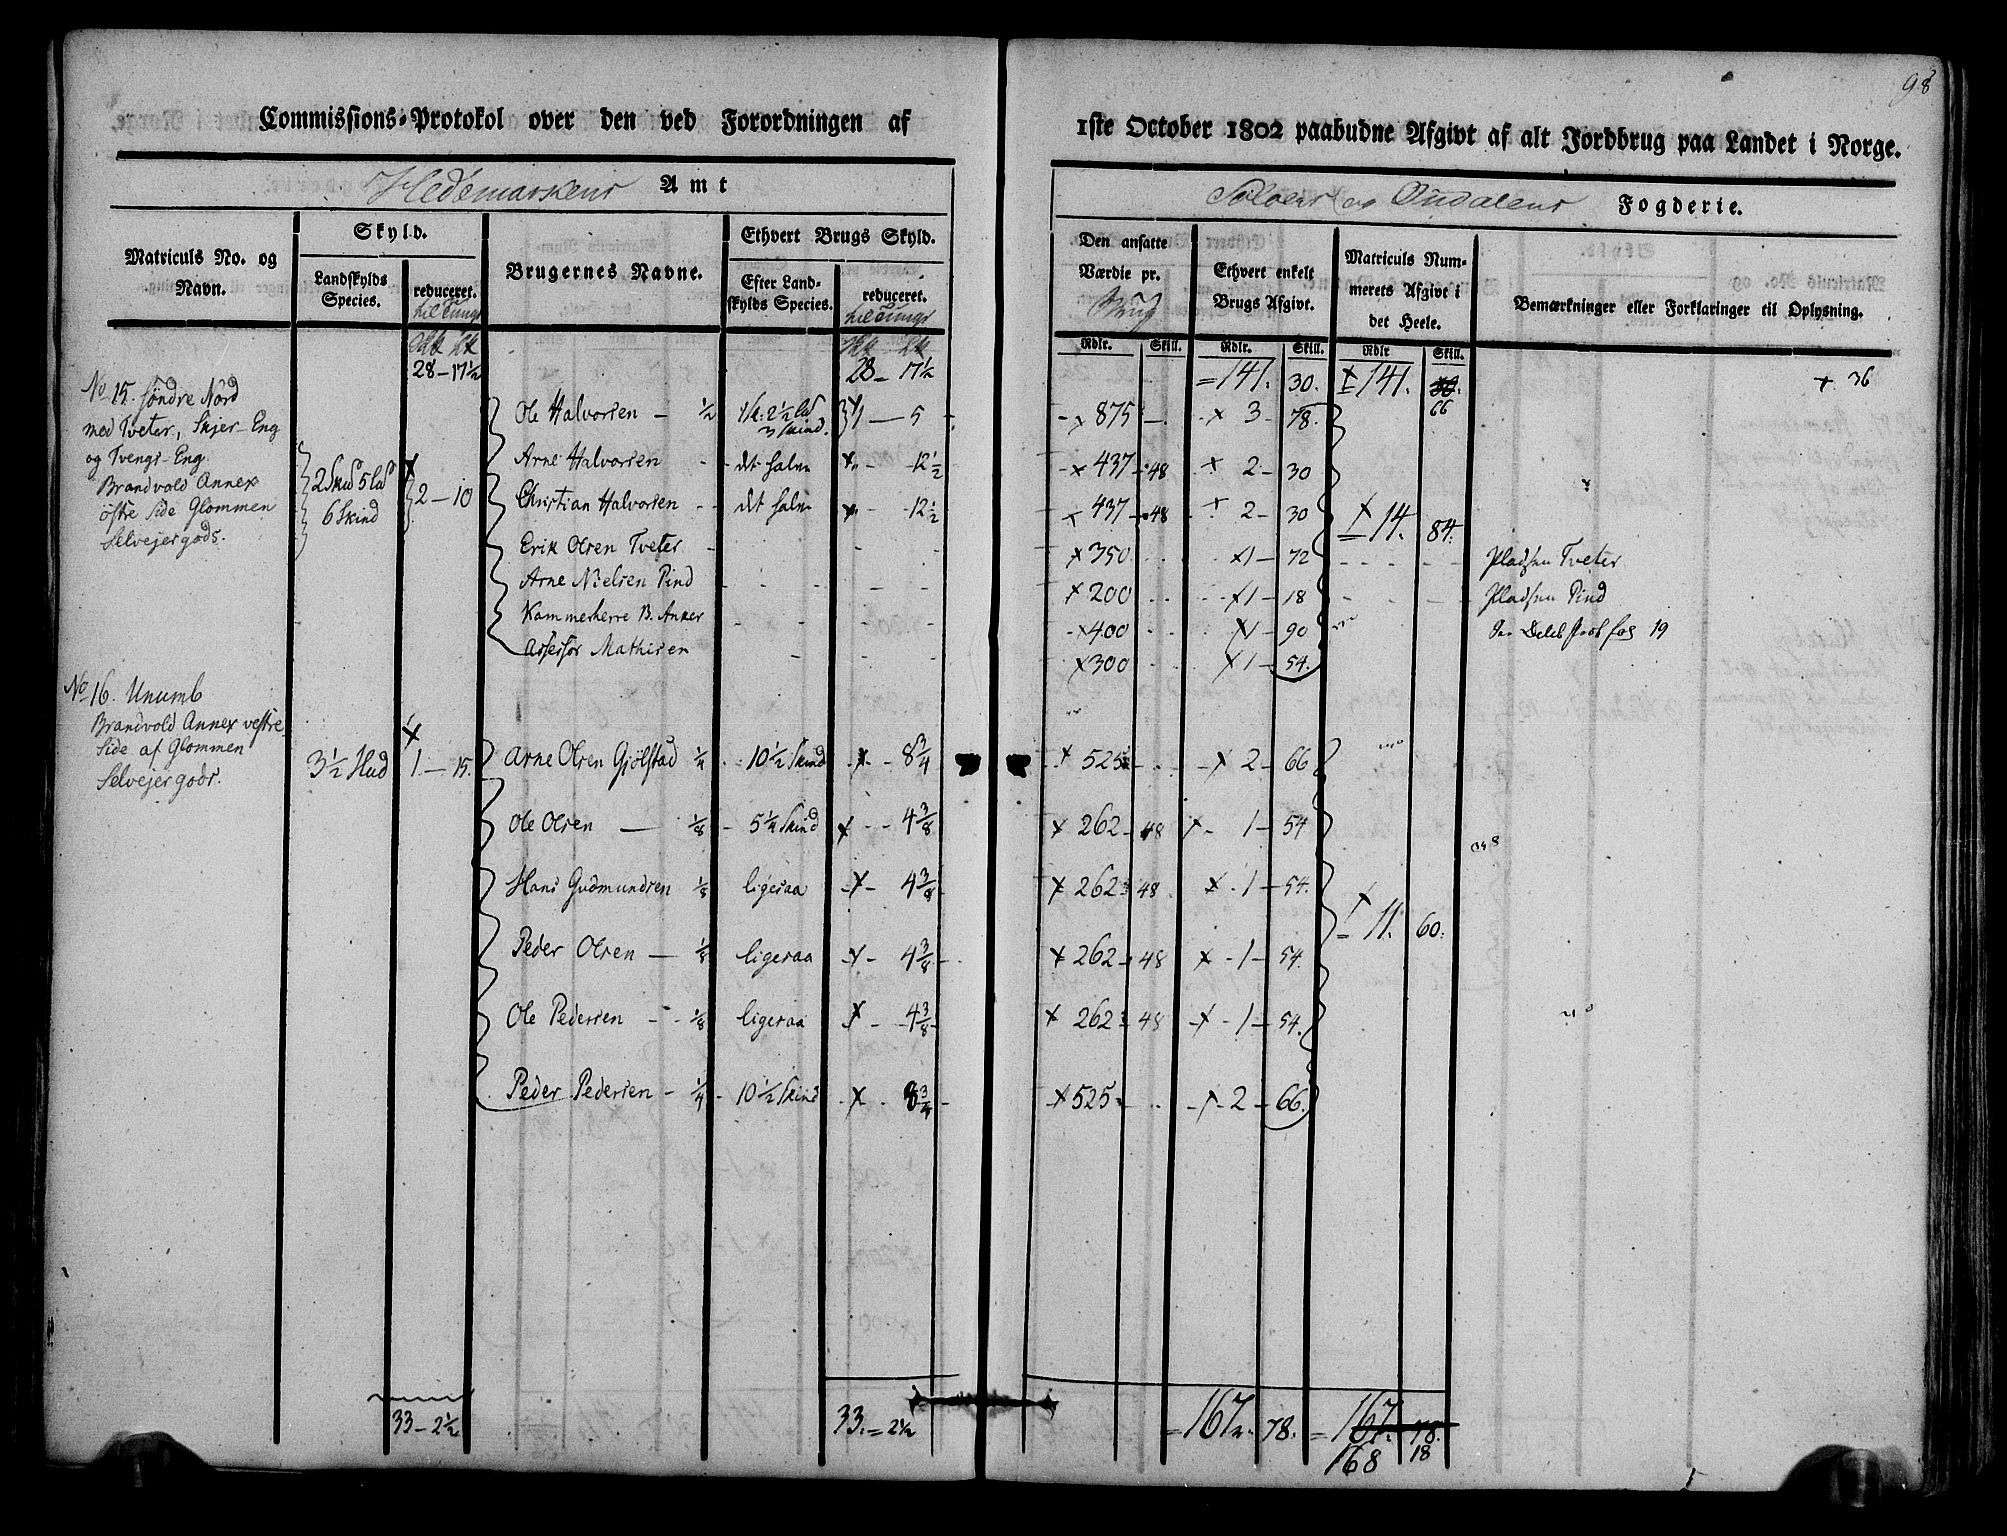 98
Commissions-Protokol over den ved Forordningen af
1ste October 1802 paabudne Afgivt af alt Jordbrug paa Landet i Norge.
Hedemarkens Amt
Soloers og Oudalens Fogderie.
Matriculs No. og Navn.
Skyld.
Landskylds Species.
reduceret.
til Tunge
Brugernes Navne.
Ethvert Brugs Skyld.
Efter Landskylds Species.
reduceret.
til Tunge
Den ansatte Værdie pr.
Brug
Ethvert enkelt Brugs Afgivt.
Matriculs Nummerets Afgivt i det Heele.
Bemærkninger eller Forklaringer til Oplysning.
Rdlr. Skill. Rdlr. Skill. Rdlr Skill.
28 - 17½ 28 - 17½ = 141. 30. 141. 66 + 36
No 15. söndre Nord
med Tveter, Skjer-Eng
og Tvengs-Eng
Brandvold Annex
östre Side Glommen
Selvejergods.
6 Skind
2 - 10
Ole Halvorsen - ½ 3 Skind. 1 - 5 875 - 3 - 78.
Arne Halvorsen det halve 12½ 437 - 48 2 - 30
Christian Halvorsen det halve 12½ 437 - 48 2 - 30 14. 84.
Erik Olsen Tveter 350 1 - 72 Pladsen Tveter
Arne Nielsen Pind 200 1 - 18 Pladsen Pind
Kammerherre B. Anker 400 1 - 90
Assessor Mathisen 300 1 - 54.
No 16. Unumb
Brandvold Annex vestre
Side af Glommen
Selvejergods.
3½ Hud 1 - 15.
Arne Olsen Gjölstad ¼ 10½ Skind 8¾ 525 2 - 66
Ole Olsen - ⅛ 5¼ Skind 4⅜ 262 - 48 1 - 54
Hans Gudmundsen ⅛ ligesaa 4⅜ 262 48 1 - 54.
Peder Olsen - ⅛ ligesaa 4⅜ 262 - 48 1 - 54. 11. 60.
Ole Pedersen - ⅛ ligesaa 4⅜ 262 48 1 - 54.
Peder Pedersen - ¼ 10½ Skind 8¾ 525 2 - 66.
33 - 2½ 33. = 2½ = 167. 78. = 167. 78.
168 18